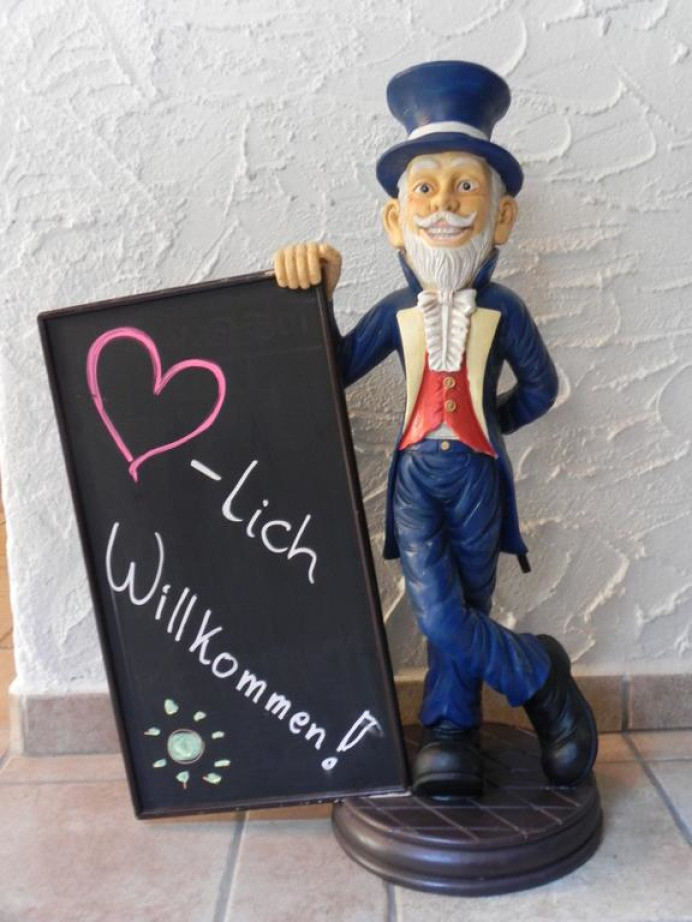 -lich
Willkommen!